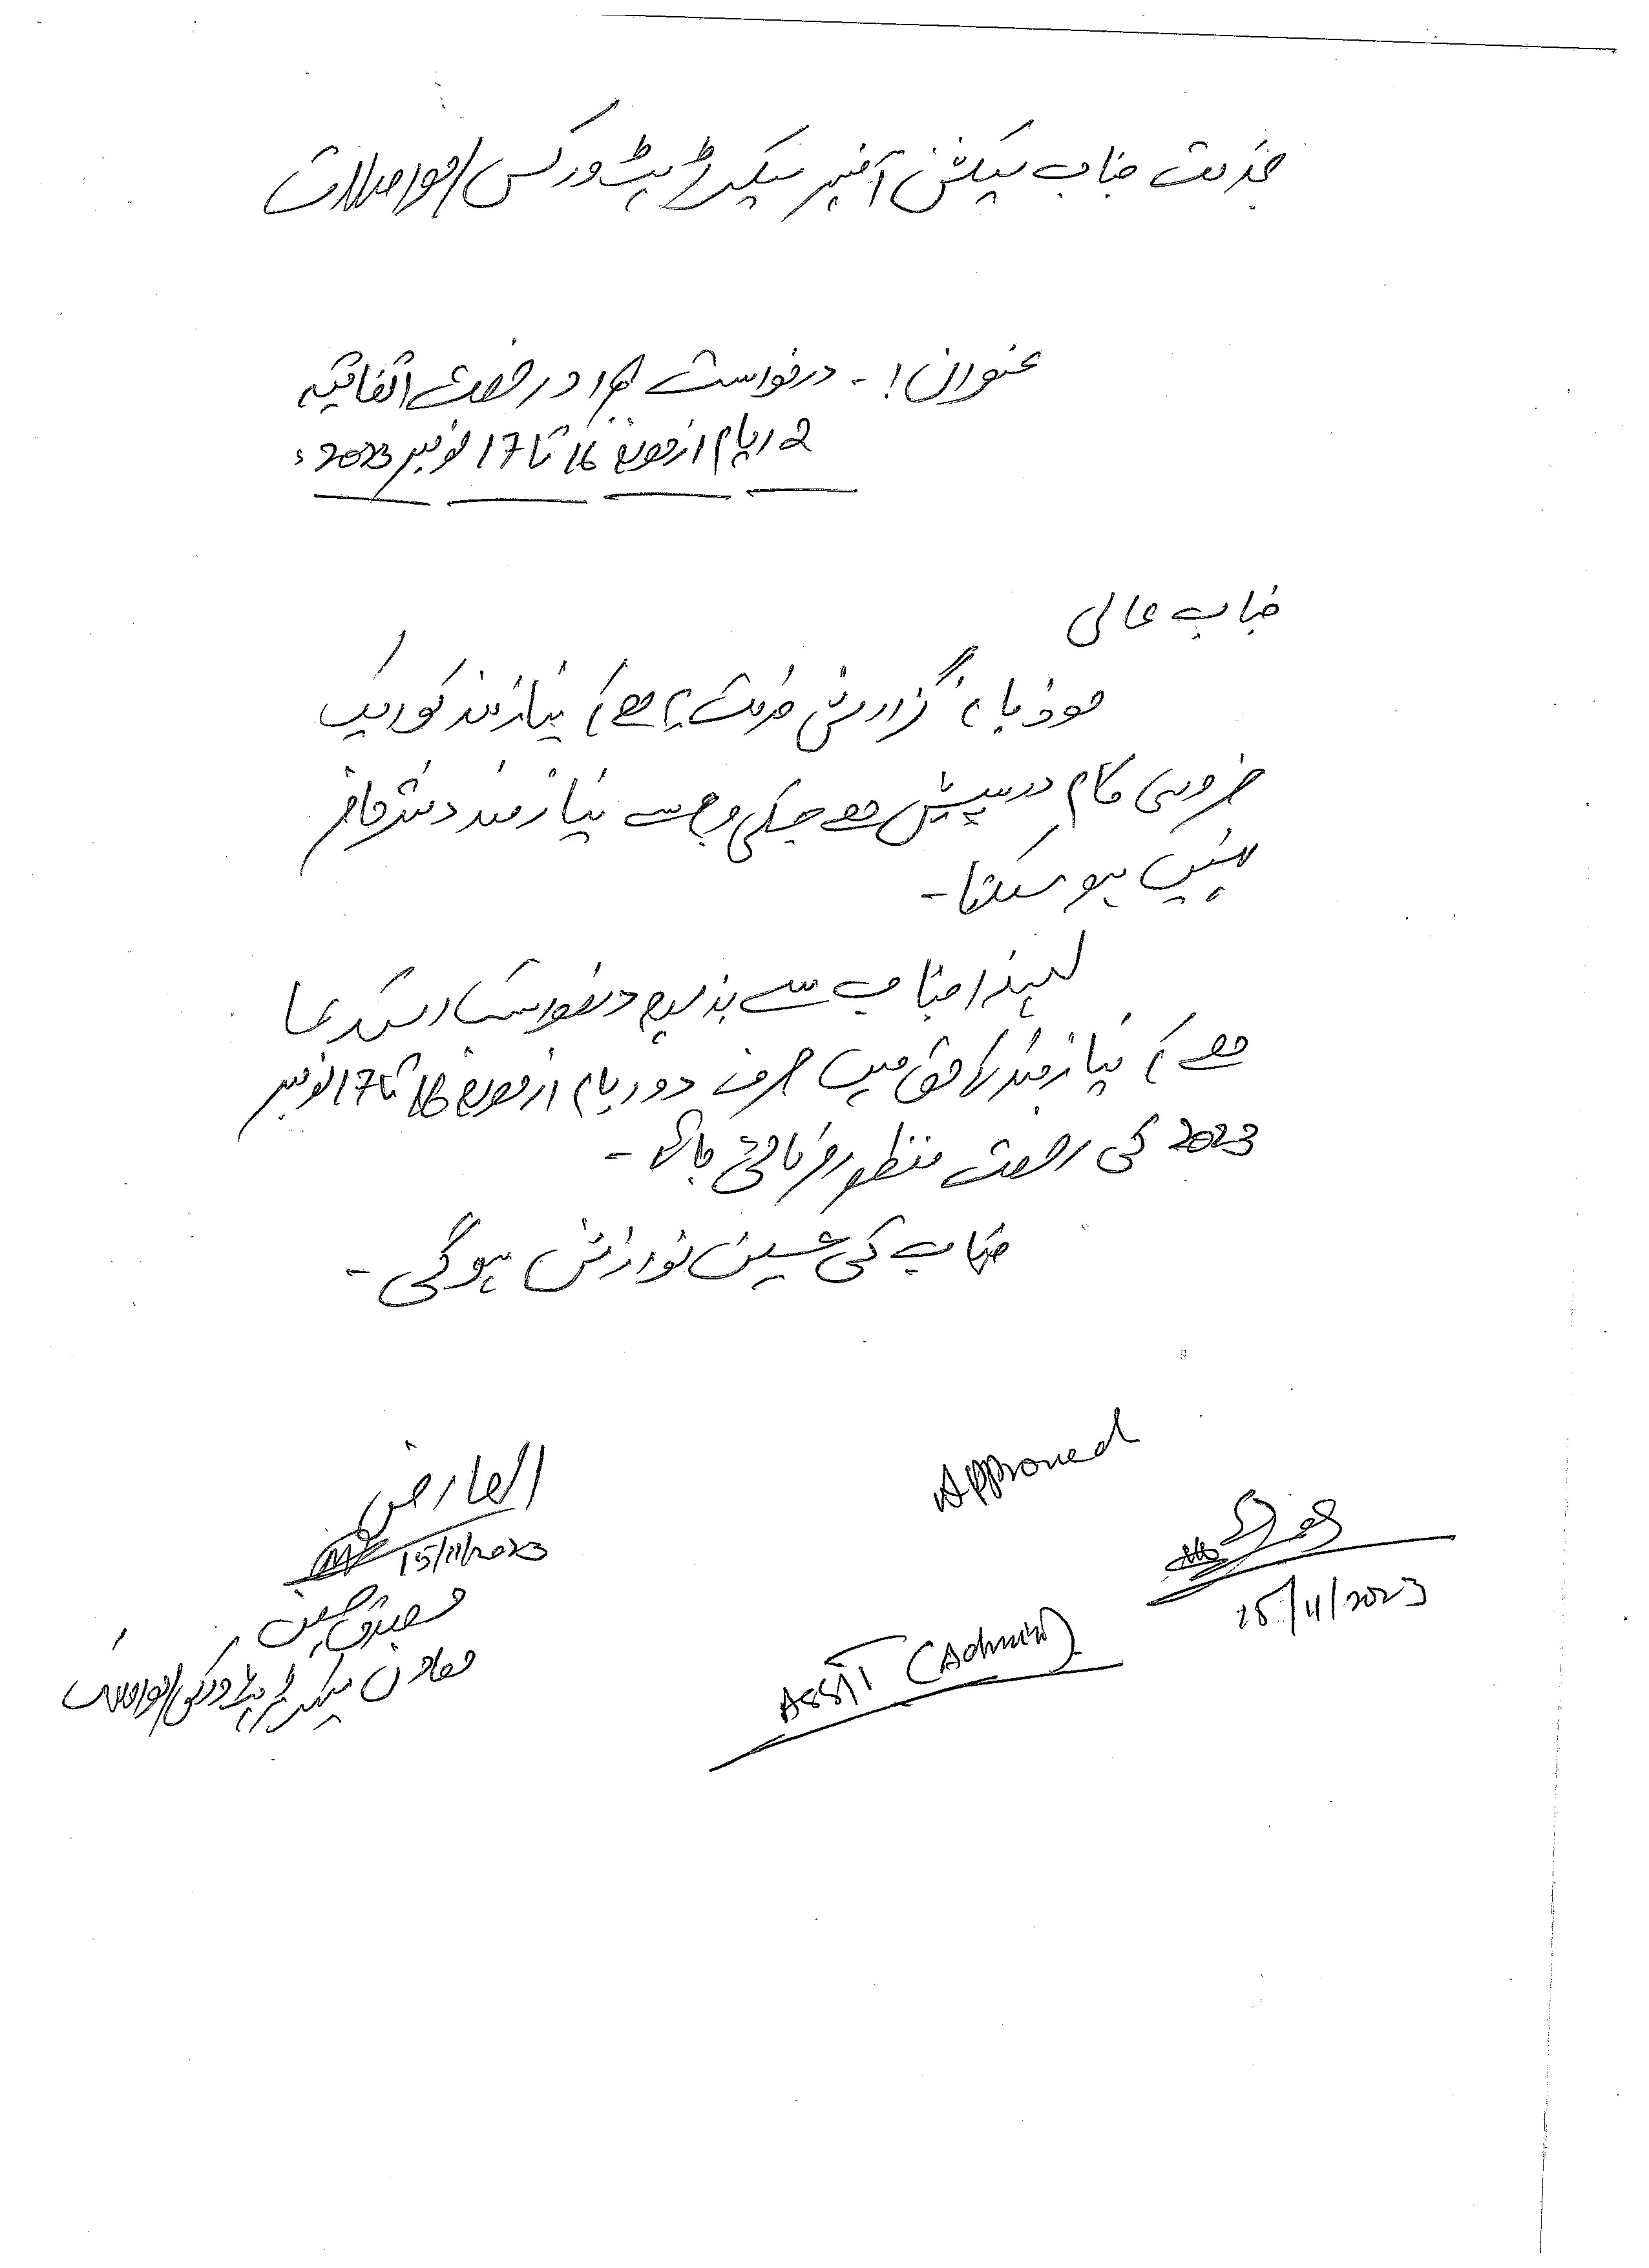 بخدمت جناب سیکشن آفیسر سیکرٹریٹ ورکس/مواصلات
عنوان!۔ درخواست بمراد رخصت اتفاقیہ
2 ایام ازمورخہ 16 تا 17 نومبر 2023ء
جناب عالی
مودبانہ گزارش خدمت ہے کہ نیازمند کو ایک
ضروری کام درپیش ہے جسکی وجہ سے نیازمند دفتر حاضر
نہیں ہو سکتا۔
لہذا جناب سے بذریعہ درخواست استدعا
ہے کہ نیازمند کے حق میں صرف دو ایام ازمورخہ 16 تا 17 نومبر
2023 کی رخصت منظور فرمائی جائے۔
جناب کی عین نوازش ہوگی۔
العارض
15/11/2023
حسین
معاون سیکرٹریٹ ورکس/مواصلات
Approved
15/11/2023
Assit (Admin)